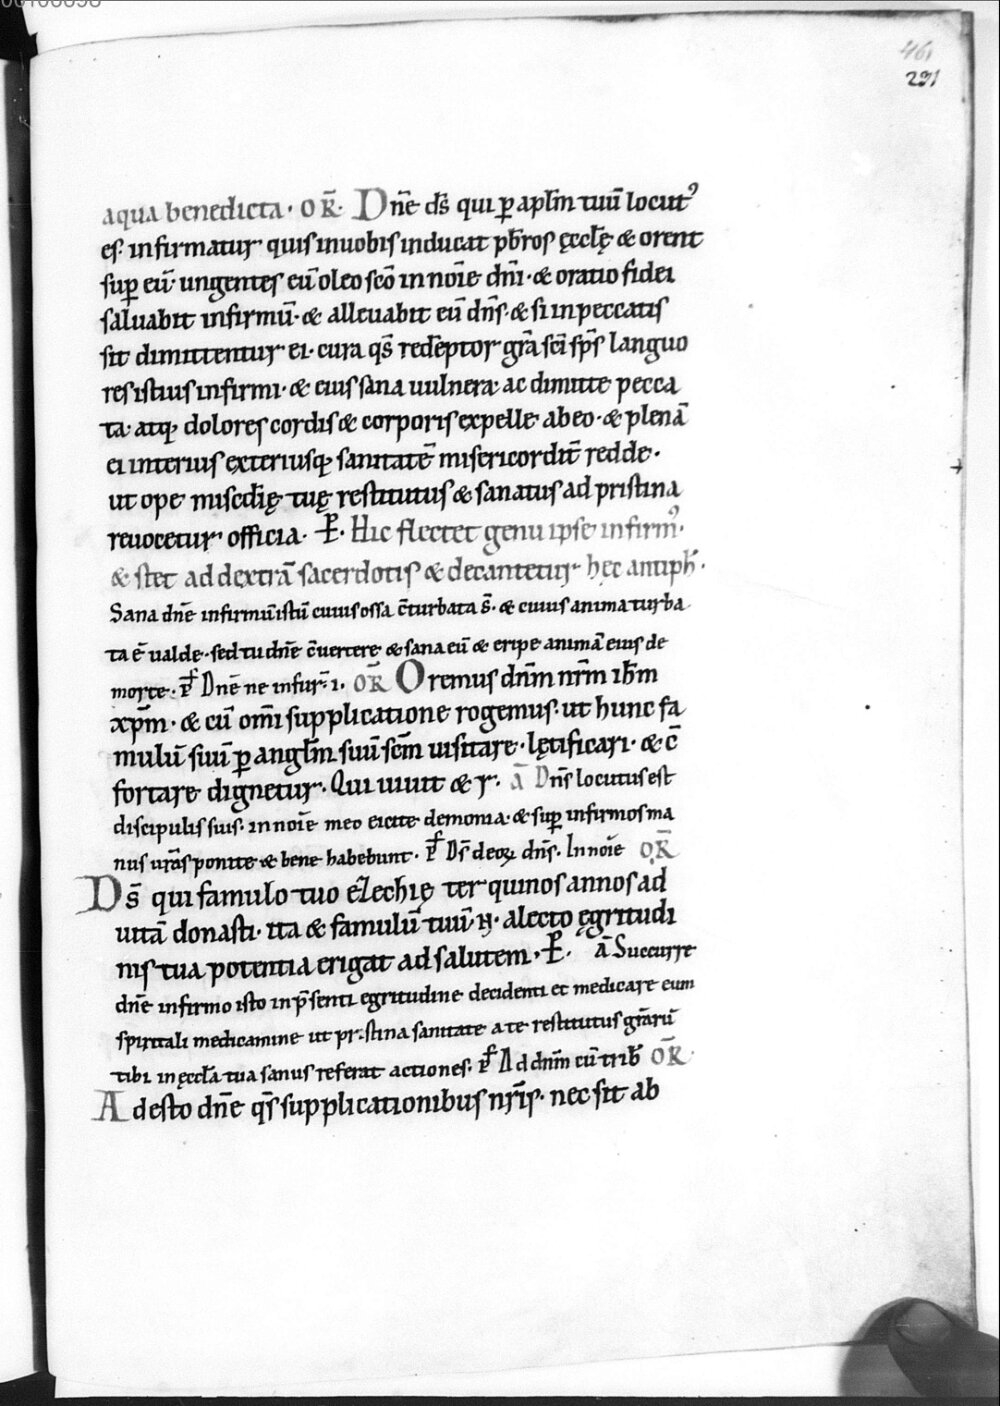 461
291
aqua benedicta· OR̄· Dn̄e ds̄ qui ꝑ apl̄m tuū locutꝰ
es· infirmatur quis in uobis inducat pb̄ros ęccl̄ę & orent
suꝑ eū· ungentes eū oleo sc̄o in noīe dn̄i· & oratio fidei
saluabit infirmū· & alleuabit eū dn̄s· & si in peccatis
sit dimittentur ei· cura qs̄ redēptor gr̄a sc̄i sp̄s languo
res istius infirmi· & eius sana uulnera· ac dimitte pecca
ta· atq; dolores cordis & corporis expelle ab eo· & plenā
ei interius exteriusq; sanitatē misericordit̄ redde·
ut ope mis̄cdię tuę restitutus & sanatus ad pristina
reuocetur officia· P̄· Hic flectet genu ipse infirmꝰ·
& stet ad dextrā sacerdotis & decantetur hęc antiph̄·
Sana dn̄e infirmū istū cuius ossa c̄turbata s̄· & cuius anima turba
ta ē ualde· sed tu dn̄e c̄uertere & sana eū & eripe animā eius de
morte· p̄ Dn̄e ne in fur̄· i· OR̄ Oremus dn̄m nr̄m ih̄m
xp̄m· & cū om̄i supplicatione rogemus· ut hunc fa
mulū suū ꝑ angl̄m suū sc̄m uisitare· lętificari· & c̄
fortare dignetur· Qui uiuit & r· ā Dn̄s locutus est
discipulis suis· in noīe meo eicite demonia· & suꝑ infirmos ma
nus ur̄as ponite & bene habebunt· p̄ Ds̄ deoꝝ dn̄s· In noīe OR̄
Ds̄ qui famulo tuo ezechię ter quinos annos ad
uitā donasti· ita & famulū tuū N· a lecto ęgritudi
nis tua potentia erigat ad salutem· P̄· ā Succurre
dn̄e infirmo isto in p̄senti egritudine decidenti et medicare eum
spiritali medicamine ut pristina sanitate a te restitutus gr̄arū
tibi in ęccl̄a tua sanus referat actiones· p̄ Ad dn̄m cū trib̄ OR̄
Adesto dn̄e qs̄ supplicationibus nr̄is· nec sit ab